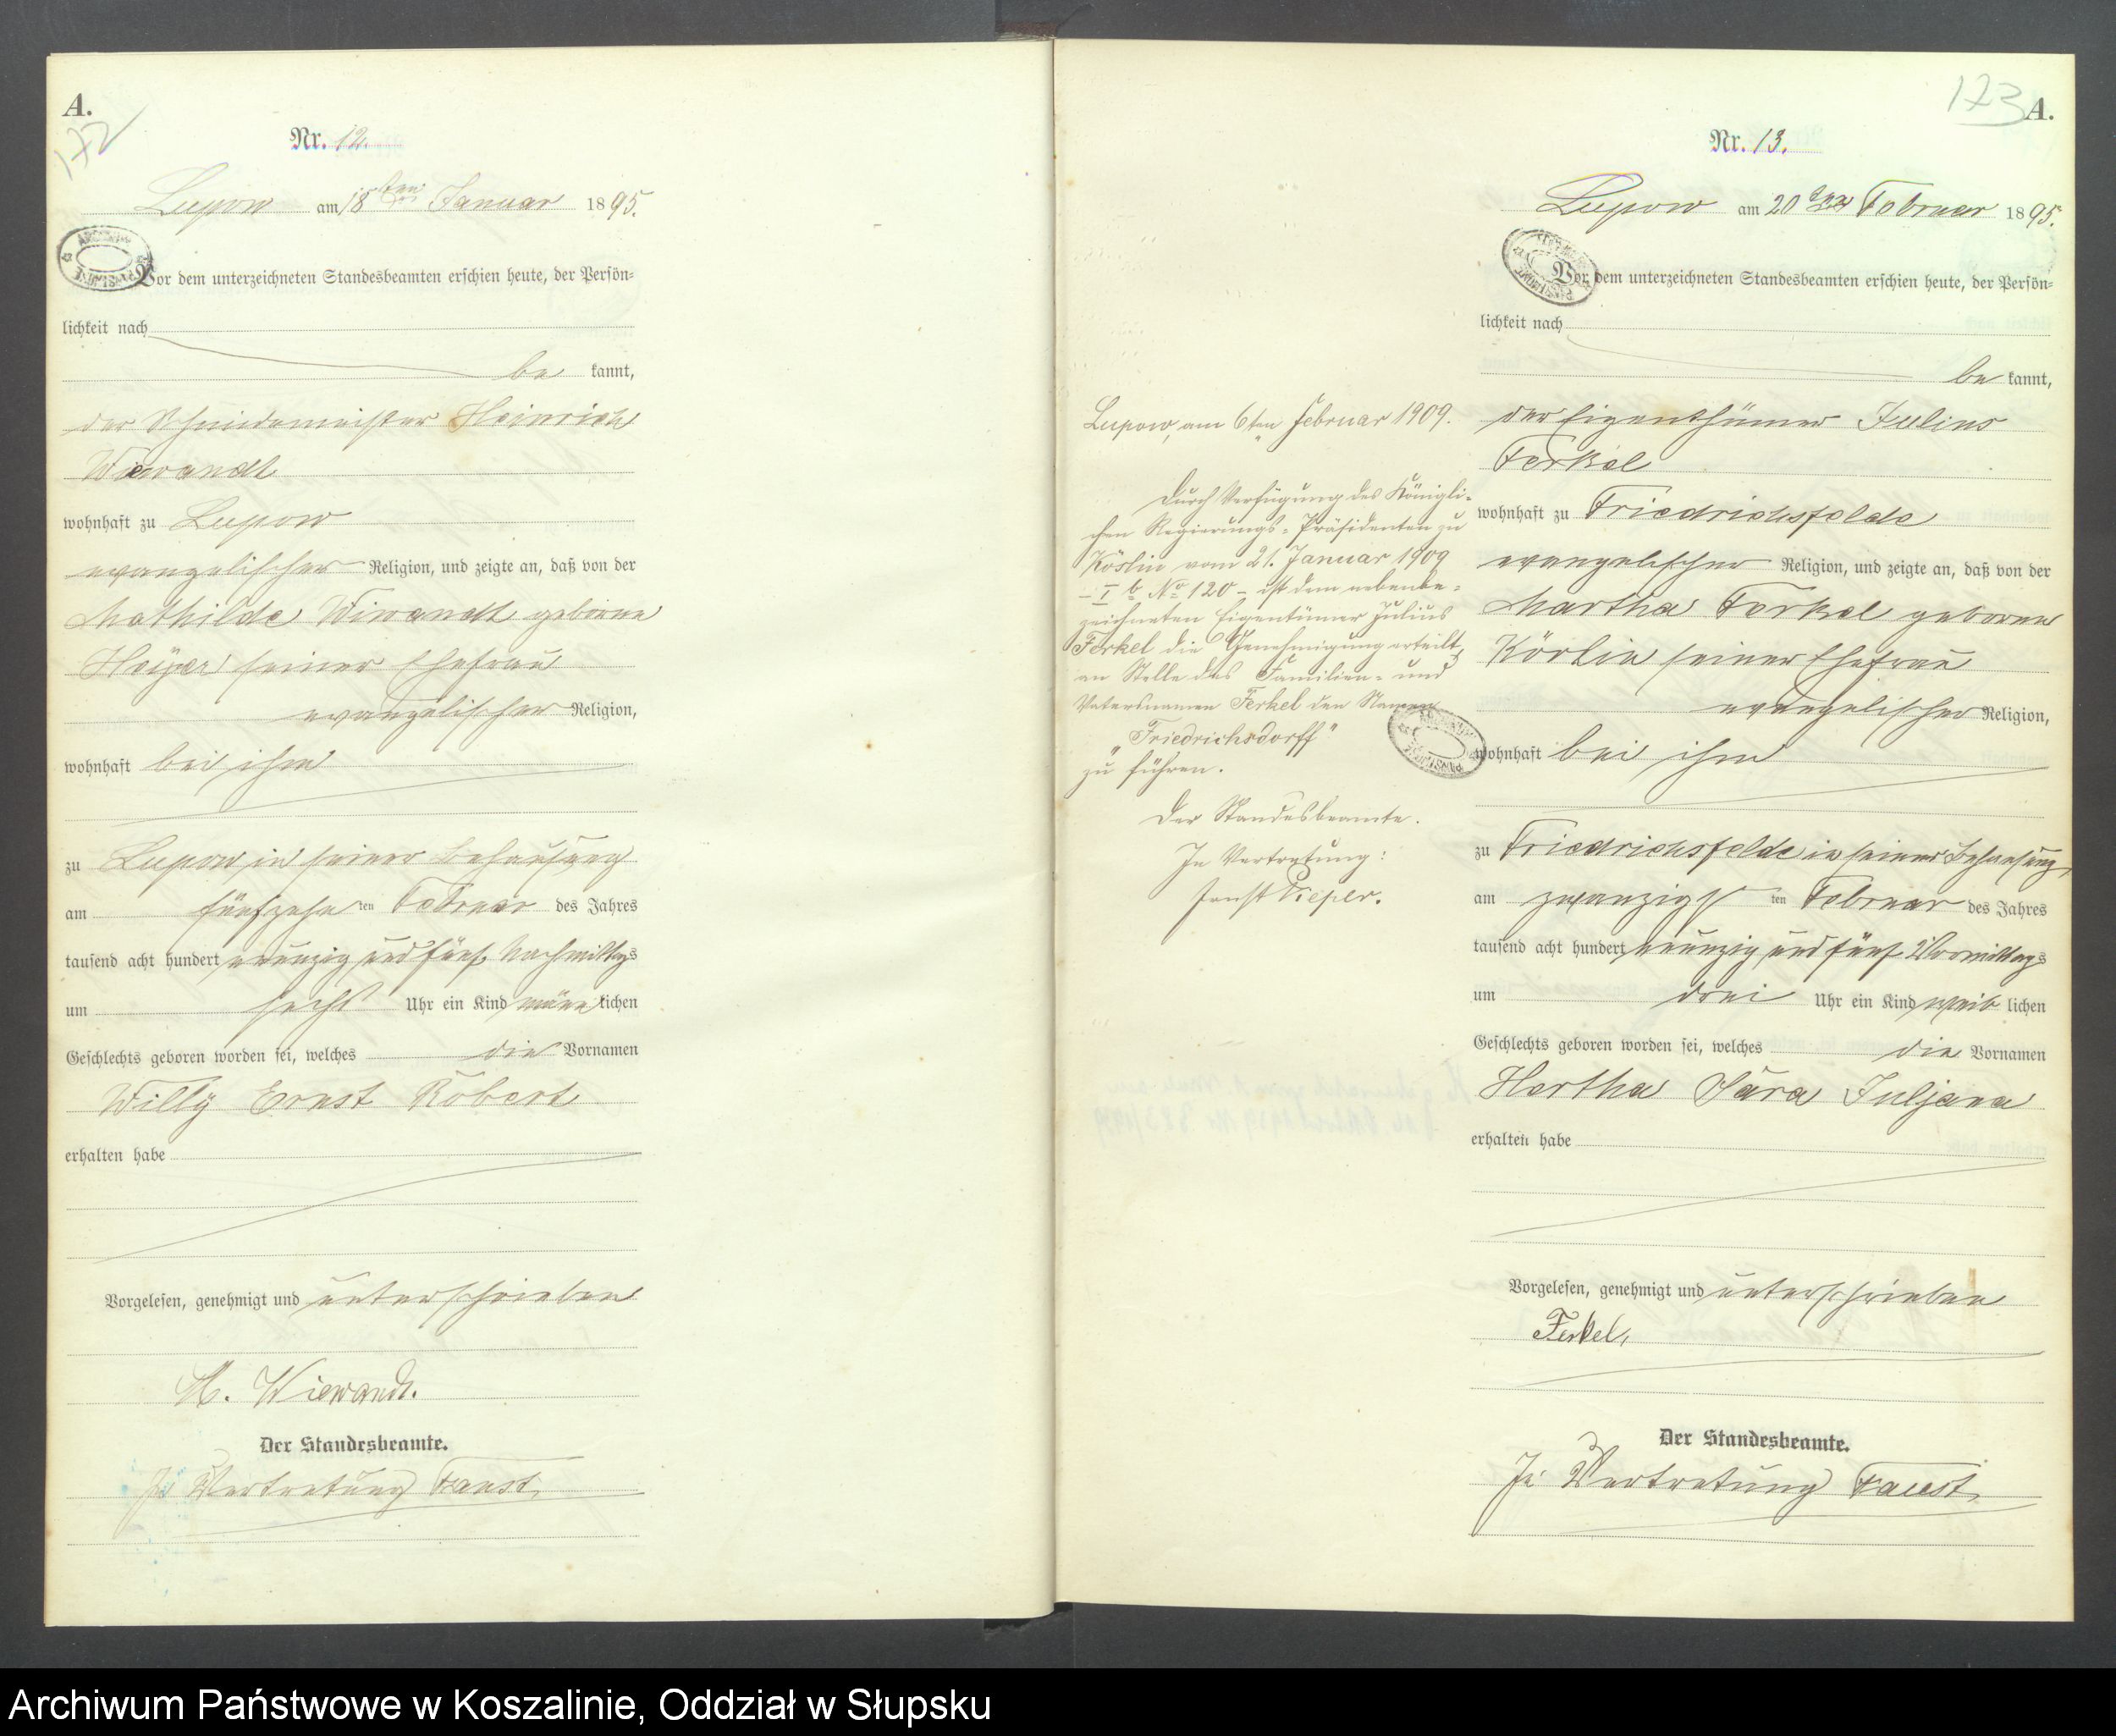 A.
172
Nr. 12.
Lupow am 18ten Januar 1895.
Vor dem unterzeichneten Standesbeamten erschien heute, der Persön=
lichkeit nach
be kannt,
der Schmiedemeister Heinrich
Wiewandt
wohnhaft zu Lupow
evangelischer Religion, und zeigte an, daß von der
Mathilde Wiwandt geborene
Heÿer seiner Ehefrau
evangelischer Religion,
wohnhaft bei ihm
zu Lupow in seiner Behausung
am fünfzehn ten Februar des Jahres
tausend acht hundert neunzig und fünf Nachmittags
um sechs Uhr ein Kind männ lichen
Geschlechts geboren worden sei, welches die Vornamen
Willy Ernst Robert
erhalten habe
Vorgelesen, genehmigt und unterschrieben
H. Wiewandt.
Der Standesbeamte.
In Vertretung Faust
173 A.
Nr. 13.
Lupow am 20ten Februar 1895.
Vor dem unterzeichneten Standesbeamten erschien heute, der Persön=
lichkeit nach
be kannt,
der Eigenthümer Julius
Ferkel
wohnhaft zu Friedrichsfelde
evangelischer Religion, und zeigte an, daß von der
Martha Ferkel geborene
Körlin seiner Ehefrau
evangelischer Religion,
wohnhaft bei ihm
zu Friedrichsfelde in seiner Behausung
am zwanzigs ten Februar des Jahres
tausend acht hundert neunzig und fünf Vormittags
um drei Uhr ein Kind weib lichen
Geschlechts geboren worden sei, welches die Vornamen
Hertha Sara Juljana
erhalten habe
Vorgelesen, genehmigt und unterschrieben
Ferkel,
Der Standesbeamte.
In Vertretung Faust
Lupow, am 6ten Februar 1909.
Durch Verfügung des Königli=
chen Regierungs=Präsidenten zu
Köslin vom 21. Januar 1909
– I b No 120 – ist dem nebenbe=
zeichneten Eigentümer Julius
Ferkel die Genehmigung erteilt,
an Stelle des Familien= und
Vatersnamen Ferkel den Namen
„Friedrichsdorff"
zu führen.
Der Standesbeamte.
In Vertretung:
Pieper.
Archiwum Państwowe w Koszalinie, Oddział w Słupsku